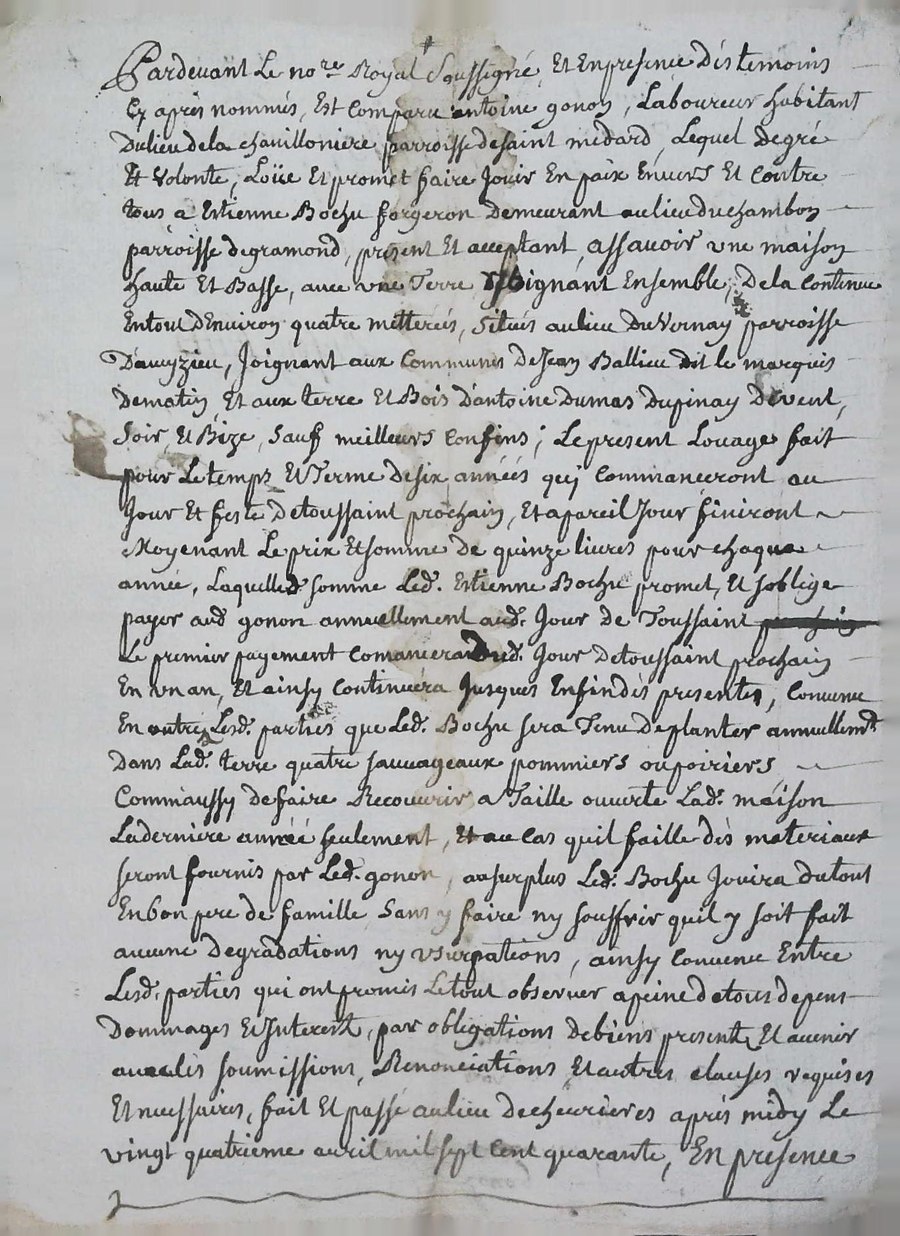 Pardevant Le no.re Royal Soussigné, Et Enpresence Des temoins
Cy aprés nommés, Est Comparu antoine gonon, Laboureur habitant
Dulieu dela chavilloniere parroisse desaint médard, Lequel degré
Et Volonte, Loüe Et promet faire Jouir En paix Envers Et Contre
tous a Estienne Bochu forgeron Demeurant aulieu duchambon
parroisse degramond, present Et acceptant, assavoir vne maison
haute Et Basse, avec vne Terre Joignant Ensemble, Dela Contenue
Entout D'Environ quatre metterées, Situés aulieu DuVernay parroisse
D'aveyzieu, Joignant aux Communes DeJean Ballieu dit le marquis
Dematin, Et aux terre Et Bois D'antoine Dumas Dupinay Devent,
Soir, Et Bize, Sauf meilleurs Confins; Lepresent Louage fait
pour Letemps Et Terme desix années quy Commanceront au
Jour Et feste Detoussaint prochain, Et apareil Jour finiront
Moyenant Le prix Et somme de quinze livres pour chaque
année, Laquelled. somme Led. Estienne Bochu promet, Et soblige
payer aud. gonon annuellement aud. Jour de Toussaint
Le premier payement Comancera dud. Jour Detoussaint prochain
En vn an, Et ainsy Continuera Jusques Enfin dès presentes, Convenu
En outre Lesd. parties que Led. Bochu sera Tenu Deplanter annuellemt
Dans Lad. terre quatre sauvageaux pommiers ou poiriers,
Comm'aussy defaire Recouvrir a Taille ouverte Lad. maison
Laderniere année seulement, Et au cas quil faille des materiaux
seront fournis par Led. gonon, ausurplus Led. Bochu Jouira dutout
Enbon pere de famille Sans y faire ny souffrir quil y soit fait
aucune Degradations ny vsurpations, ainsy Convenu Entre
Lesd. parties qui ont promis Letout observer apeine detous depens
Dommages Et Interest, par obligations Debiens present Et avenir
avec lès soumissions, Renonciations Et autres clauses requises
Et necessaires, fait Et passé aulieu Dechevrieres aprés midy Le
vingt quatrieme avril mil sept Cent quarante, En presence